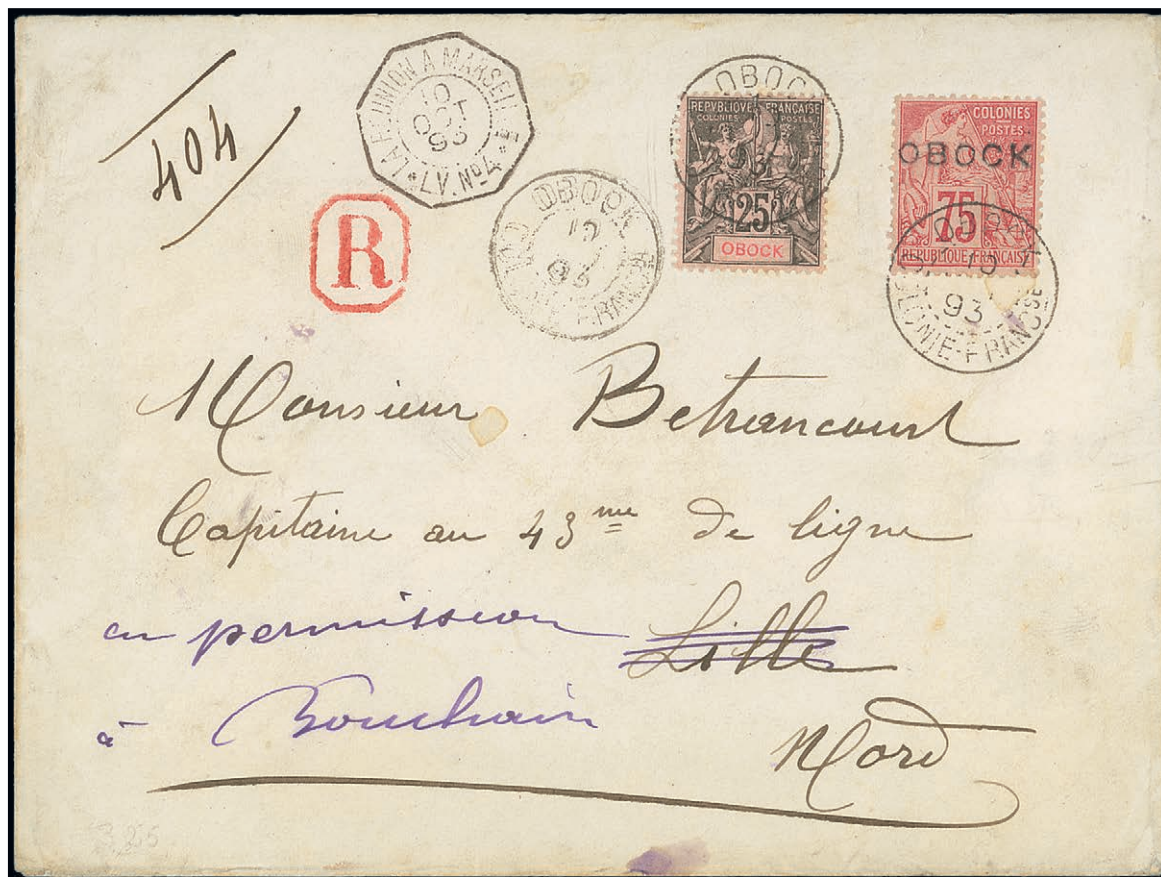 404
LA REUNION A MARSEILLE
10
OCT
93
* L.V. Nº4 *
R
OBOCK
10
93
OBOCK
93
REPVBLIQVE FRANÇAISE
COLONIES POSTES
25
OBOCK
COLONIES
POSTES
OBOCK
75
REPUBLIQUE FRANÇAISE
10
93
COLONIE-FRANÇSE
Monsieur Betrancourt
Capitaine au 43me de ligne
en permission Lille
à Bouchain
Nord